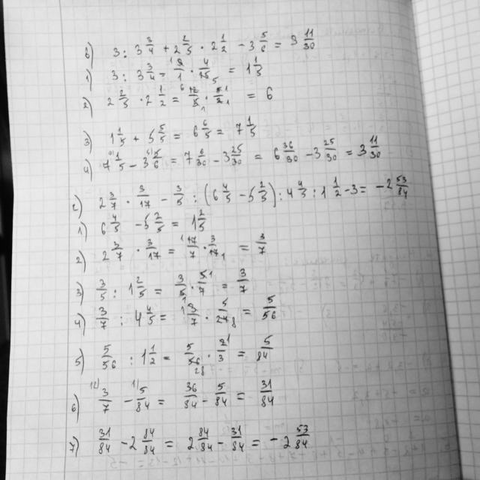 б) 3 : 3 3/4 + 2 2/5 · 2 1/2 - 3 5/6 = 3 11/30
1) 3 : 3 3/4 = 3/1 · 4/15 = 1 1/5
2) 2 2/5 · 2 1/2 = 12/5 · 5/2 = 6
3) 1 1/5 + 5 5/5 = 6 6/5 = 7 1/5
4) 7 1/5 - 3 5/6 = 7 6/30 - 3 25/30 = 6 36/30 - 3 25/30 = 3 11/30
г) 2 3/7 · 3/17 - 3/5 : (6 4/5 - 5 2/5) : 4 4/5 : 1 1/2 - 3 = - 2 53/84
1) 6 4/5 - 5 2/5 = 1 2/5
2) 2 3/7 · 3/17 = 17/7 · 3/17 = 3/7
3) 3/5 : 1 2/5 = 3/5 · 5/7 = 3/7
4) 3/7 : 4 4/5 = 3/7 · 5/24 = 5/56
5) 5/56 : 1 1/2 = 5/56 · 2/3 = 5/84
6) 3/7 - 5/84 = 36/84 - 5/84 = 31/84
7) 31/84 - 2 84/84 = 2 84/84 - 31/84 = - 2 53/84